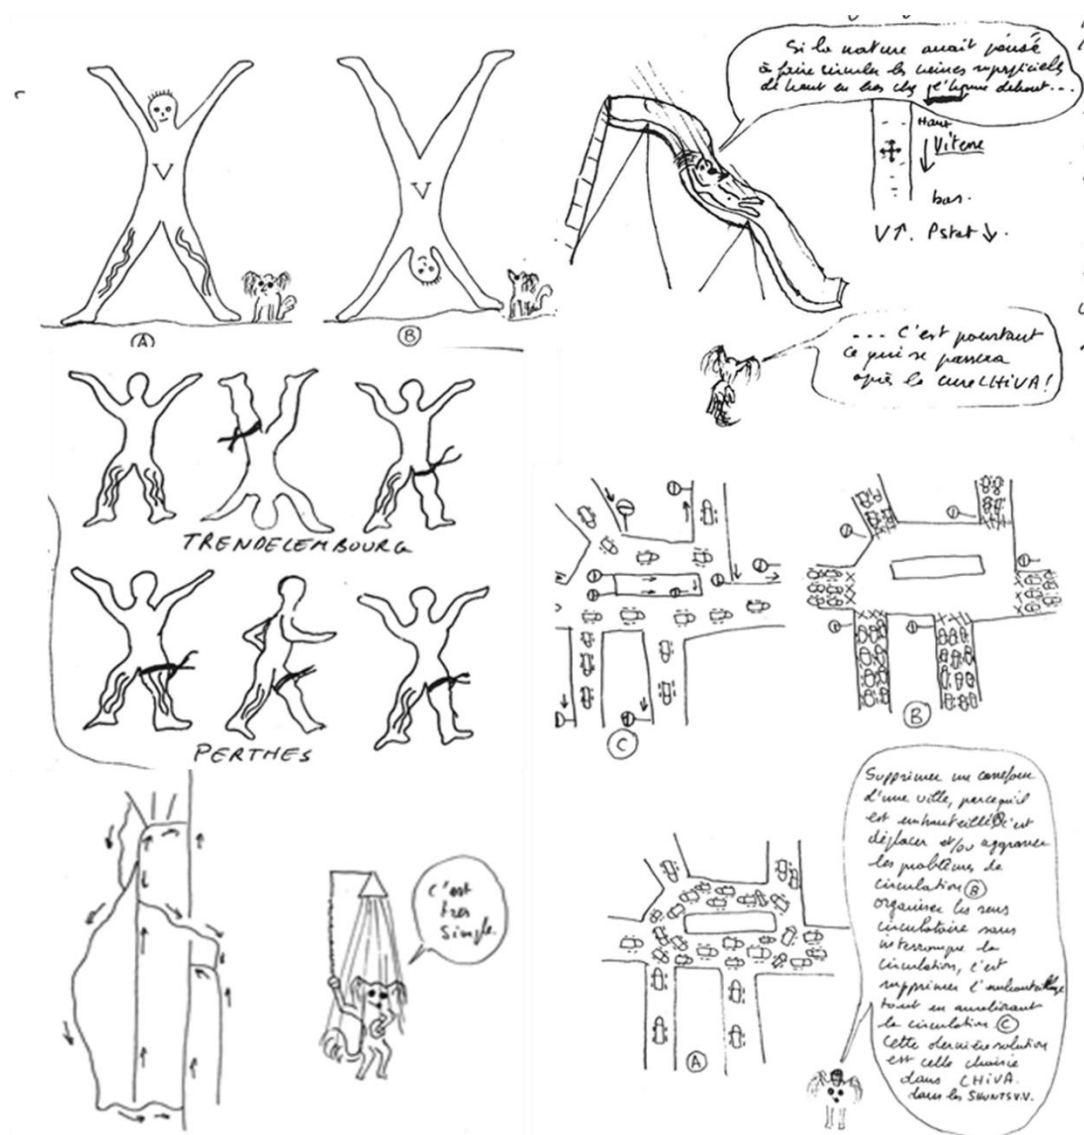 V
V
A
B
TRENDELEMBOURG
PERTHES
Si la nature avait pensé
à faire circuler les veines superficiels
de haut en bas chez l'homme debout...
Haut
Vitesse
bas.
V↑. Pstat ↓.
... C'est pourtant
ce qui se passera
après la cure CHIVA!
C
B
C'est
très
simple.
A
Supprimer un carrefour
d'une ville, parcequ'il
est embouteillé c'est
déplacer et/ou aggraver
les problèmes de
circulation B
organiser les sens
circulatoire sans
interrompre la
circulation, c'est
supprimer l'embouteillage
tout en améliorant
la circulation. C
Cette dernière solution
est celle choisie
dans CHIVA.
dans les SHUNTS V.V.